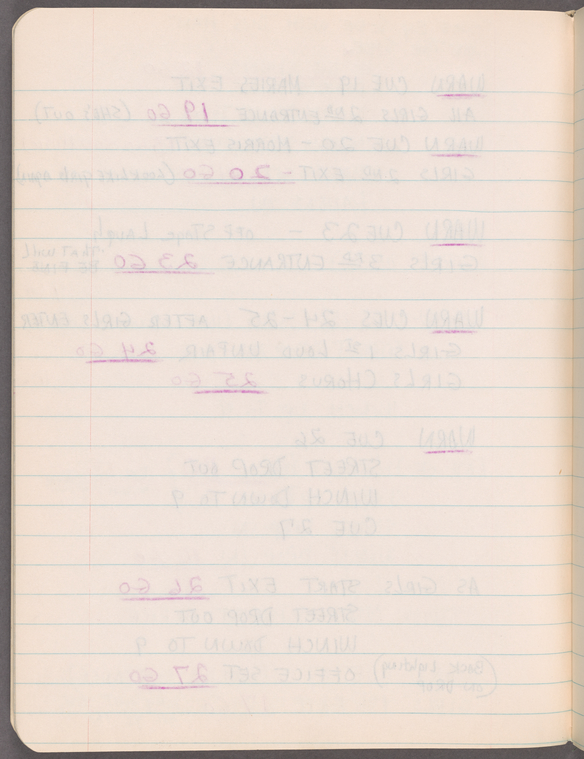 WARN CUE 19 MARIES EXIT
ALL GIRLS 2ND ENTRANCE 19 GO (SHE'S OUT)
WARN CUE 20 - MORRIS EXIT
GIRLS 2ND EXIT - 20 GO
WARN CUE 23 - OFF STAGE LAUGH
GIRLS 3RD ENTRANCE 23 GO "THAT WILL BE FINE
WARN CUES 24-25 AFTER GIRLS ENTER
GIRLS 1ST LOUD UNFAIR 24 GO
GIRLS CHORUS 25 GO
WARN CUE 26
STREET DROP OUT
WINCH DOWN TO 9
CUE 27
AS GIRLS START EXIT 26 GO
STREET DROP OUT
WINCH DOWN TO 9
(BACK Lighting ON DROP) OFFICE SET 27 GO